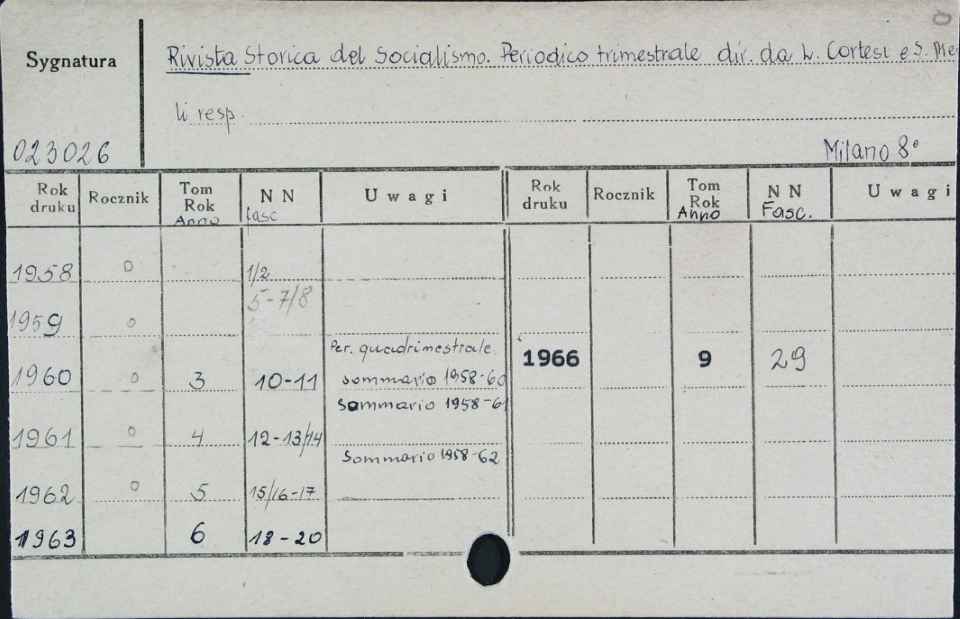 Sygnatura
Rivista Storica del Socialismo. Periodico trimestrale dir. da L. Cortesi e S. Me
li resp.
023026
Milano 8°
Rok druku Rocznik Tom Rok Anno N N fasc Uwagi Rok druku Rocznik Tom Rok Anno N N Fasc. Uwagi
1958 0 1/2
5-7/8
1959 0
Per. quadrimestrale
1960 0 3 10-11 sommario 1958-60 1966 9 29
Sommario 1958-61
1961 0 4 12-13/14
Sommario 1958-62
1962 0 5 15/16-17
1963 6 18-20